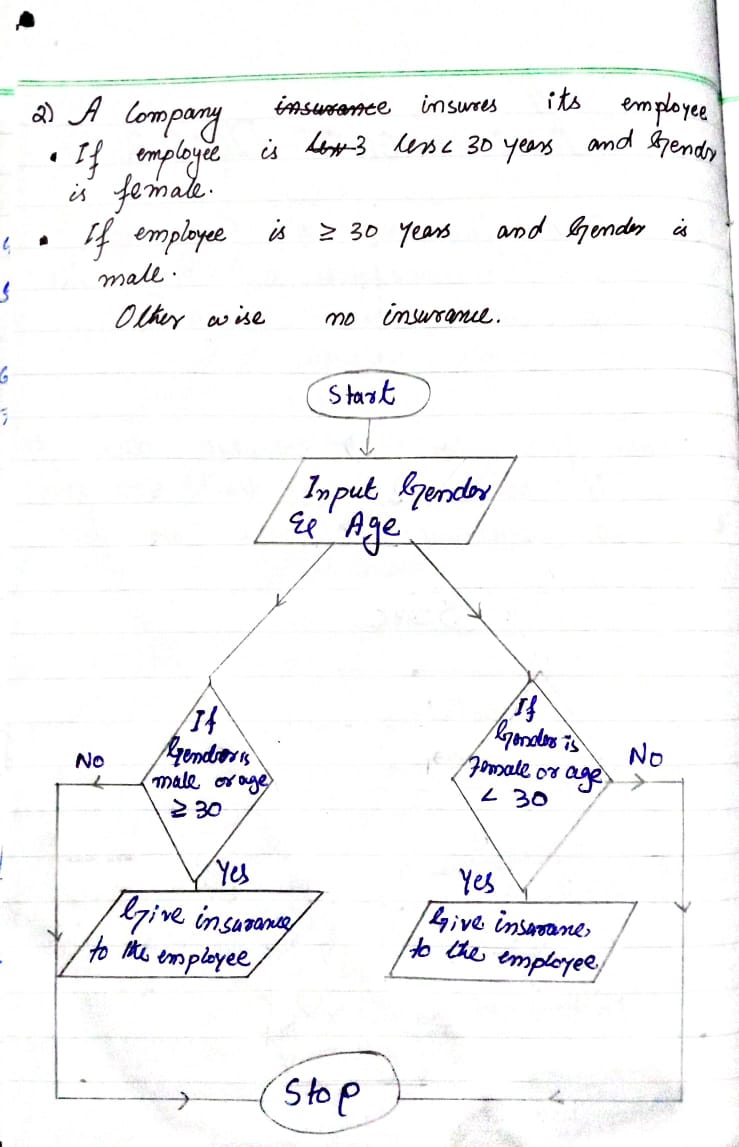 2) A Company insurance insures its employee
• If employee is less 3 less < 30 years and Gender
is female.
• If employee is ≥ 30 years and Gender is
male.
Other wise no insurance.
Start
Input Gender
& Age
If
Gender is
male or age
≥ 30
If
Gender is
Female or age
< 30
No
No
Yes
Yes
Give insurance
to the employee
Give insurane
to the employee
Stop